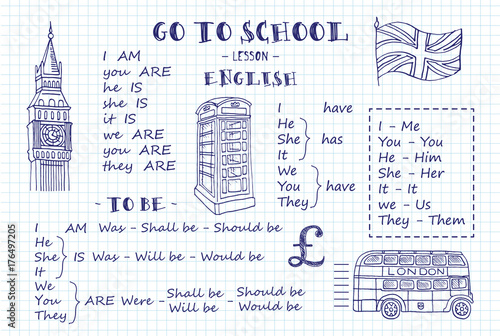 GO TO SCHOOL
- LESSON -
ENGLISH
I AM
you ARE
he IS
she IS
it IS
we ARE
you ARE
they ARE
I have
He
She has
It
We
You have
They
I - Me
You - You
He - Him
She - Her
It - It
we - Us
They - Them
- TO BE -
I AM Was - Shall be - Should be
He
She IS Was - Will be - Would be
It
We
You ARE Were - Shall be - Should be
They Will be - Would be
£
LONDON
Adobe Stock | #176497205